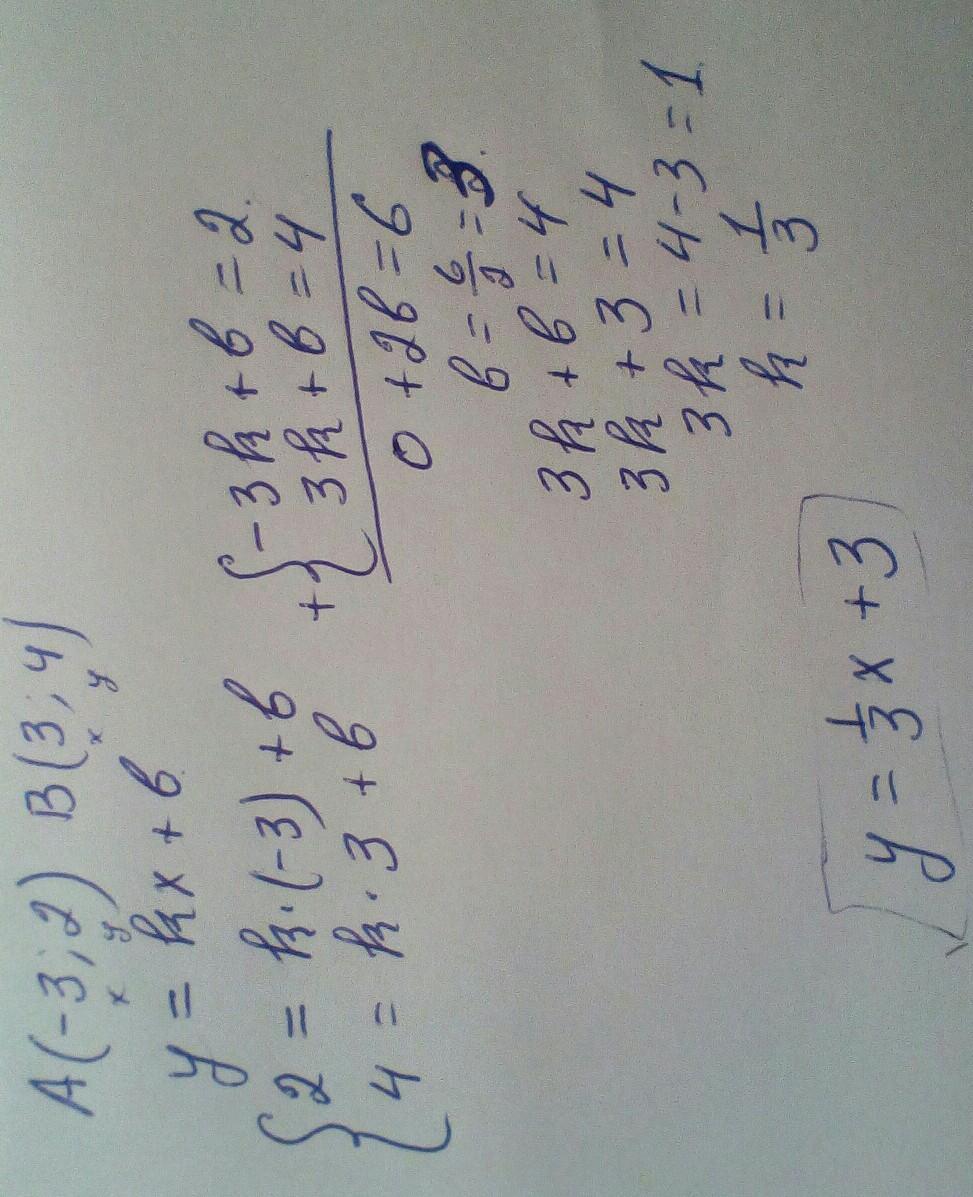 A(-3; 2) B(3; 4)
x y x y
y = kx + b
{ 2 = k·(-3) + b
4 = k·3 + b
+ { -3k + b = 2
3k + b = 4
0 + 2b = 6
b = 6/2 = 3
3k + b = 4
3k + 3 = 4
3k = 4-3 = 1
k = 1/3
y = 1/3 x + 3